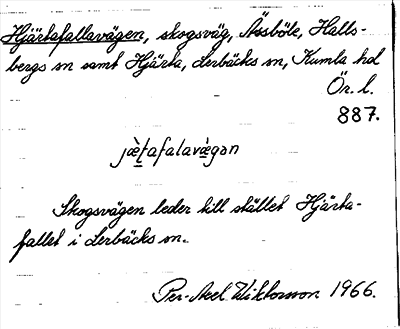 Hjärtafallavägen, skogsväg, Åssböle, Halls-
bergs sn samt Hjärta, Lerbäcks sn, Kumla hd
Ör. l.
887.
jæ̀ṭafalavæ̀gən
Skogsvägen leder till stället Hjärta-
fallet i Lerbäcks sn.
Per-Axel Wiktorsson 1966.